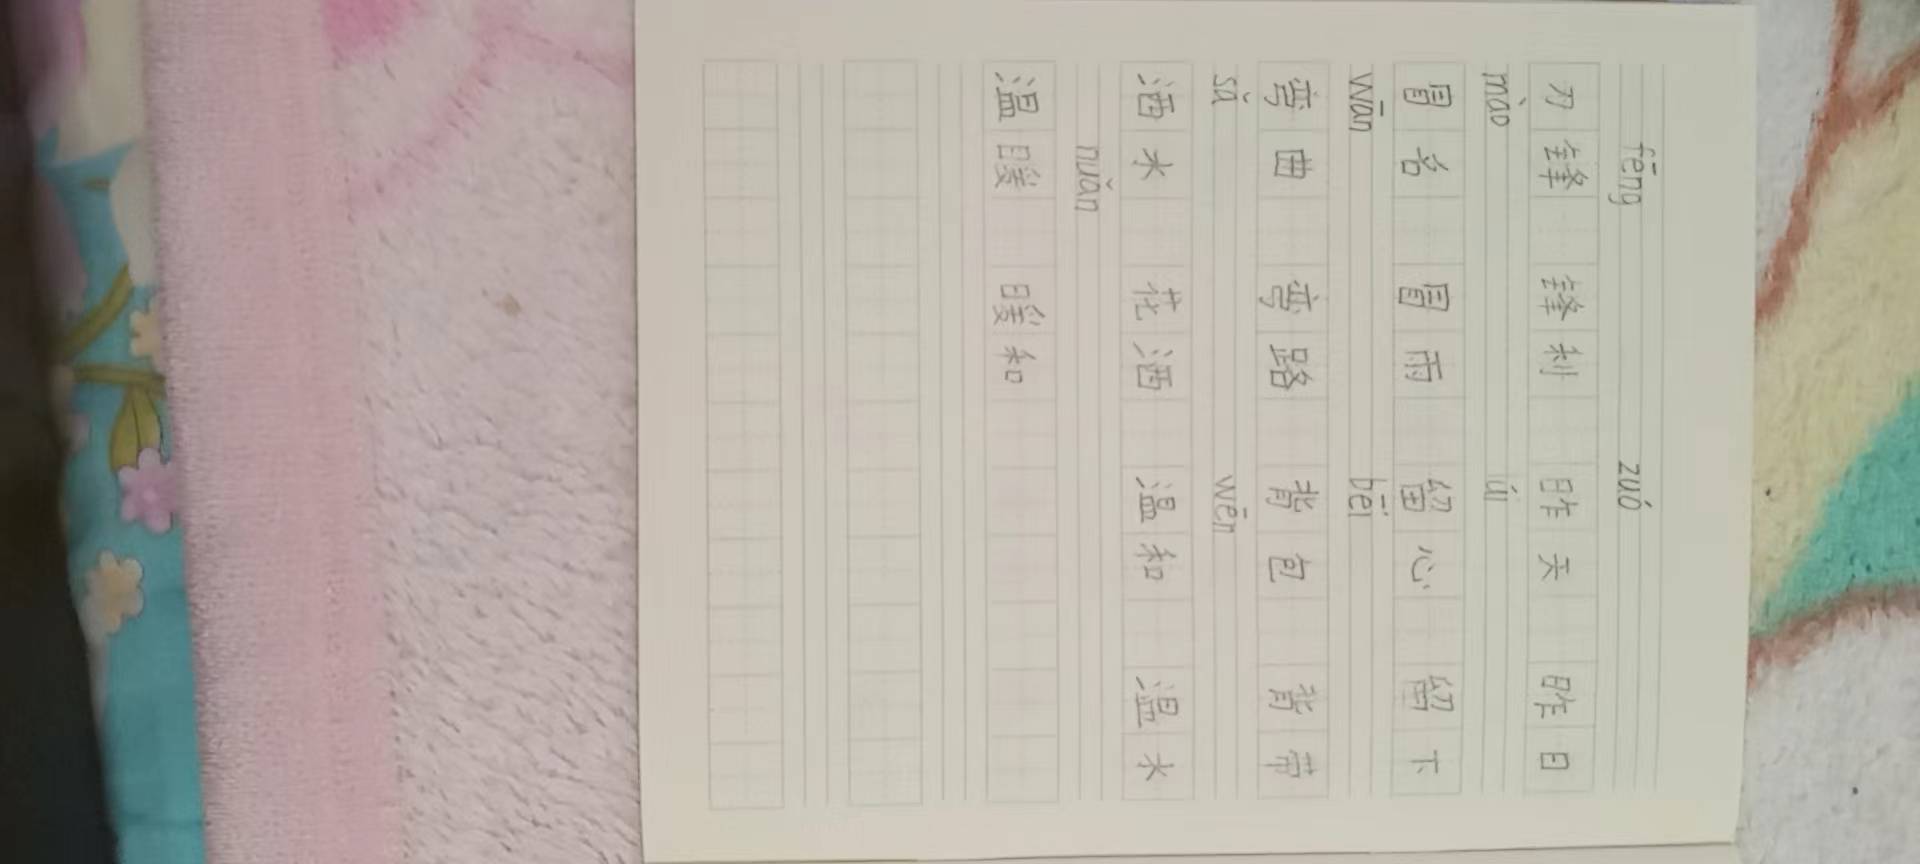 fēng zuó
刀锋 锋利 昨天 昨日
mào
冒名 冒雨 留心 留下
wān bēi
弯曲 弯路 背包 背带
sǎ wēn
洒水 花洒 温和 温水
nuǎn
温暖 暖和